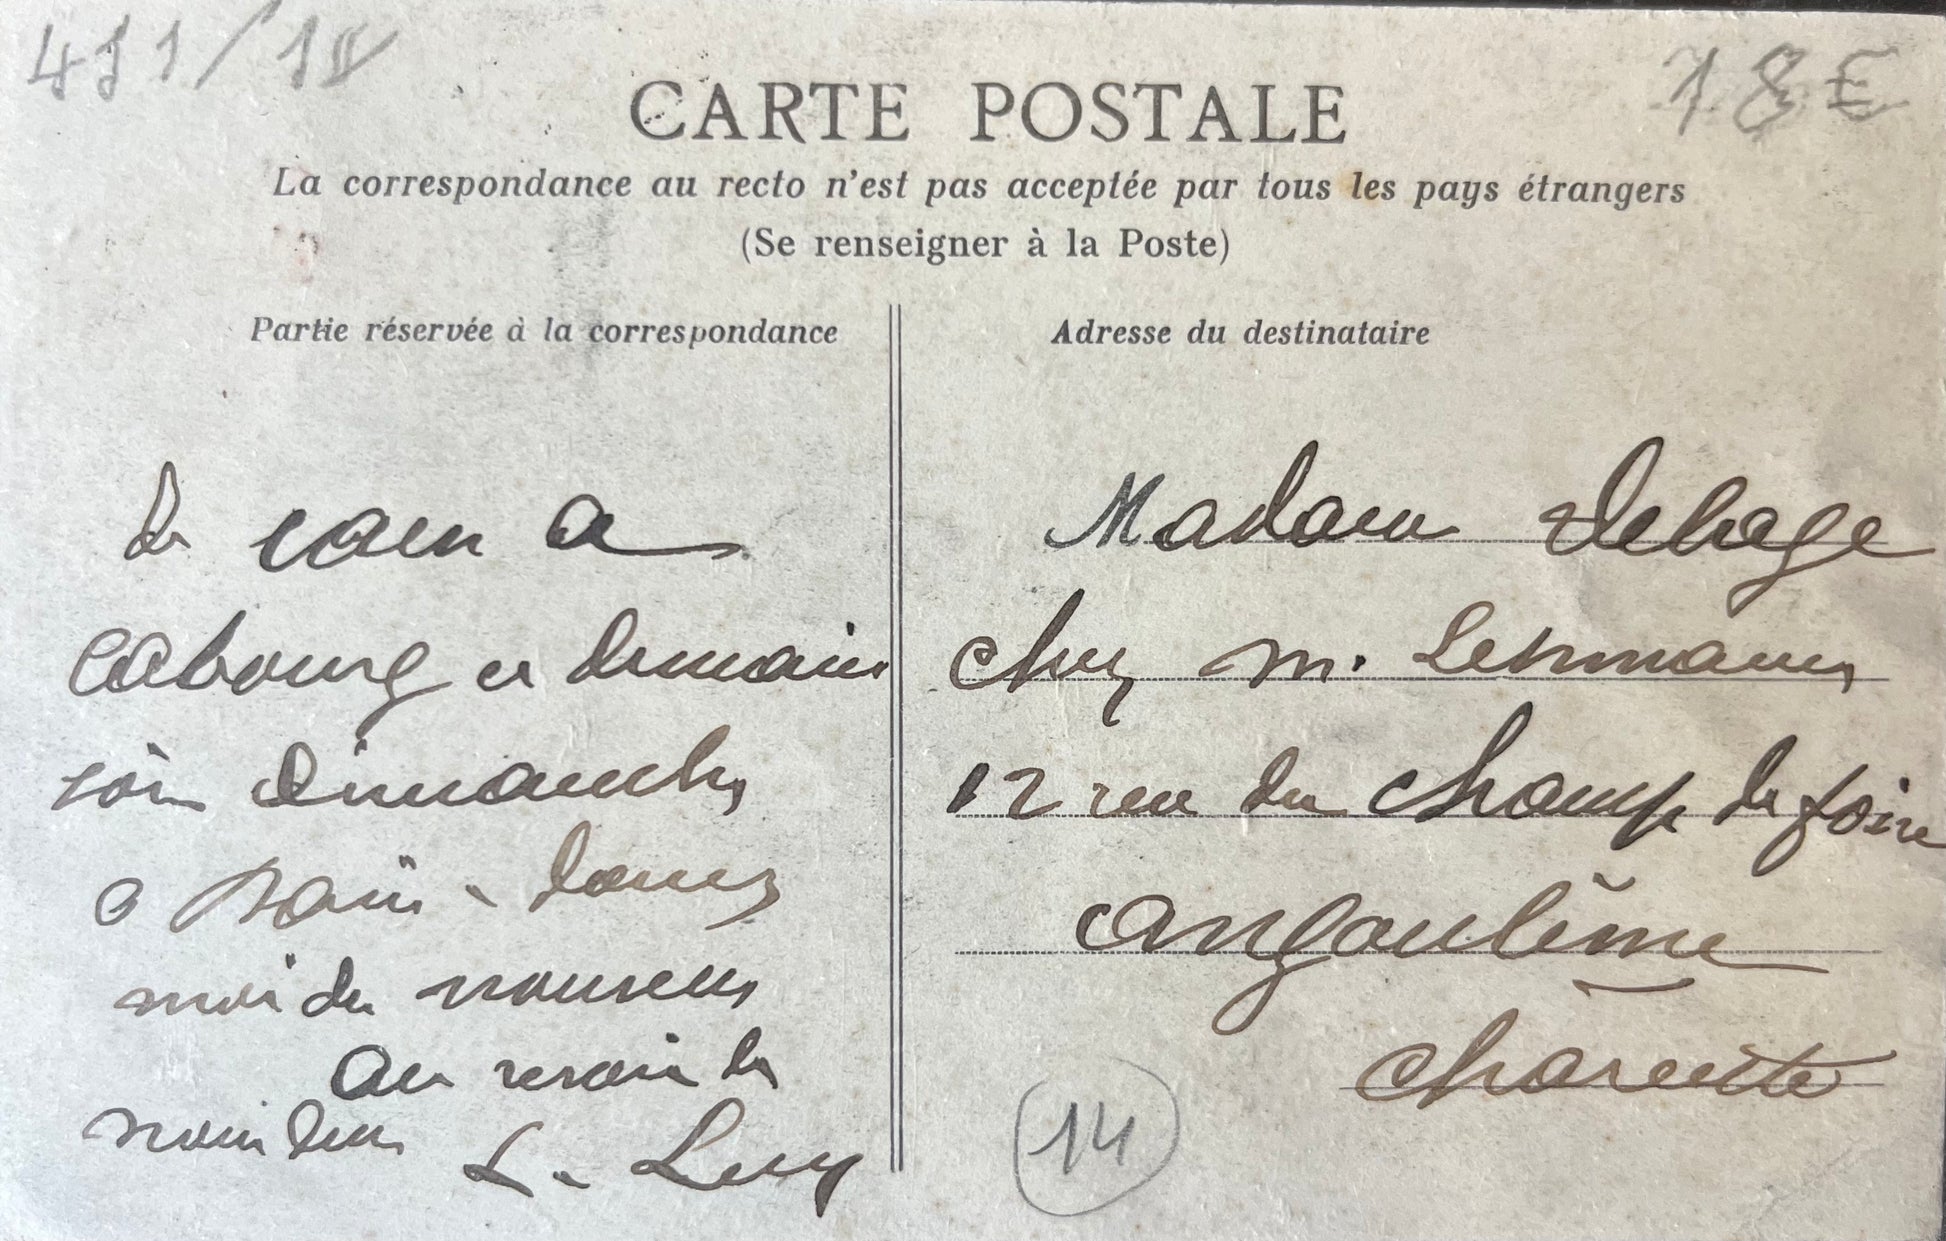 CARTE POSTALE
18 €
La correspondance au recto n'est pas acceptée par tous les pays étrangers
(Se renseigner à la Poste)
Partie réservée à la correspondance
de caen a
Cabourg et demain
soir dimanche
a Paris
moi de nouveau
au revoir de
nous deux L. Levy
Adresse du destinataire
Madam Delage
chez m. Lehmann
12 rue du champ de foire
angoulême
charente
14